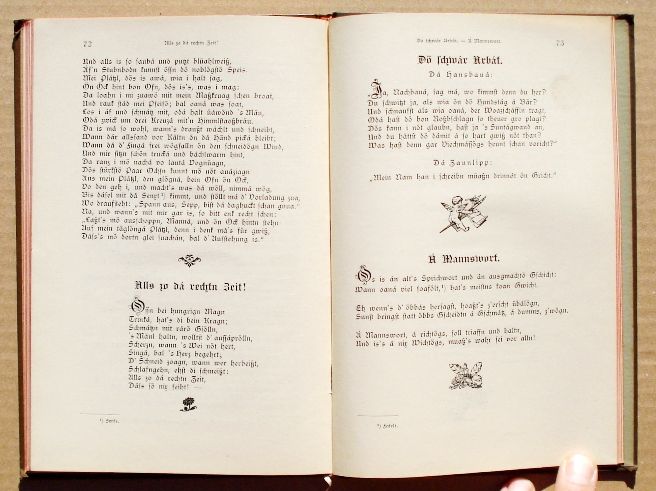 72
Alls zo dá rechtn Zeit!
Und alls is so saubá und putzt blüahlweiß,
Af'n Stubnbodn kunnst össn dö noblögstö Speis.
Mei Plátzl, dös is awá, wia i halt sag,
Ön Öck hint bon Ofn, dös is's, was i mag;
Da loahn i mi zuawö mit mein Maßkruag schen broat,
Und rauk stád mei Pfeifö; bal oaná was soat,
Los i áf und schmátz mit, odá halt
Odá zwick um drei Kreuzá mit'n
Da is má so wohl, wann's draußt wáht und schneibt,
Wann dár allsand vor Költn ön dá Händ pická bleibt;
Wann dá d' Fingá frei wögfalln ön den schneidögn Wind,
Und mir sitzn schön trucká und báchlwarm hint,
Da ranz i mö nachá vo lautá Vognüagn,
Dös stürkstö Paar Öchsn kunnt mö nöt auázügn
Aus mein Plátzl, den glögná, bein Ofn ön Öck.
Vo den geh i, und mácht's was dá wöll, nimmá wög,
Bis dásel mit dá Sengst¹) kimmt, und stöllt má d' Vorladung zua,
Wo draufsteht: „Spann aus, Sepp, bist dá daghuckt schan gnua."
No, und wann's mit mir gar is, so bitt enk recht schen:
„Laßt's mö ausschoppn, Manná, und ön Öck hintn stehn
Auf mein táglöngá Plátzl, denn i denk má's für gwiß,
Dáß's mö dortn glei suachán, bal d' Auffstehung is."
Alls zo dá rechtn Zeit!
Öffn bei hungrign Magn
Trinká, hat's di bein Kragn;
Schmátzn mit rárö Gsölln,
's Mául haltn, wollnt d' aufsáprölln;
Scherzn, wann 's Wei nöt hert,
Singá, bal 's Herz begehrt;
D' Schneid zoagn, wann wer herbeißt,
Schlafngehn, ehst di schmeißt:
Alls zo dá rechtn Zeit,
Dáß so nix feiht! —
¹) Sense.
Dö schwár Arbát. — Á Mannswort.
73
Dö schwár Arbát.
Dá Hansbauá:
Ja, Nachbauá, sag má, wo kimmst denn du her?
Du schwitzt ja, als wia ön dö Hundstág á Bár?
Und schnaufst als wia oaná, der Woazscháffln tragt.
Odá hast dö bon Roßbschlagn so theuer gro plagt?
Dös kann i nöt glaubn, hast ja 's Suntágwand an,
Und du háttst dö dámit á so hart gwiß nöt than?
Was hast denn gar Viechmássögs heunt schan voricht?"
Dá Zaunlipp:
„Mein Nam han i schreibn müaßn drinnöt ön Gricht."
Á Mannswort.
Ös is án alt's Sprichwort und án ausgmachtö Gschicht:
Wann oaná viel soafölt,¹) hat's meistns koan Gwicht.
Eh wenn's d' öbbás herjagst, hoaßt's z'ericht übálögn,
Sunst bringst statt öbbs Gscheidn á Gschmátz, á dumms, z'wögn.
Á Mannswort, á richtögs, soll triaffn und haltn,
Und is's á nix Wichtögs, muaß's wahr sei vor alln!
¹) faselt.